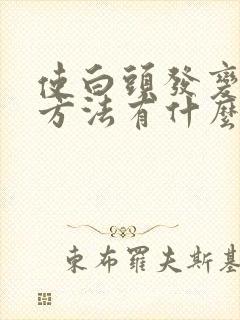 使白頭發變
方法有什麼
東布羅夫斯基